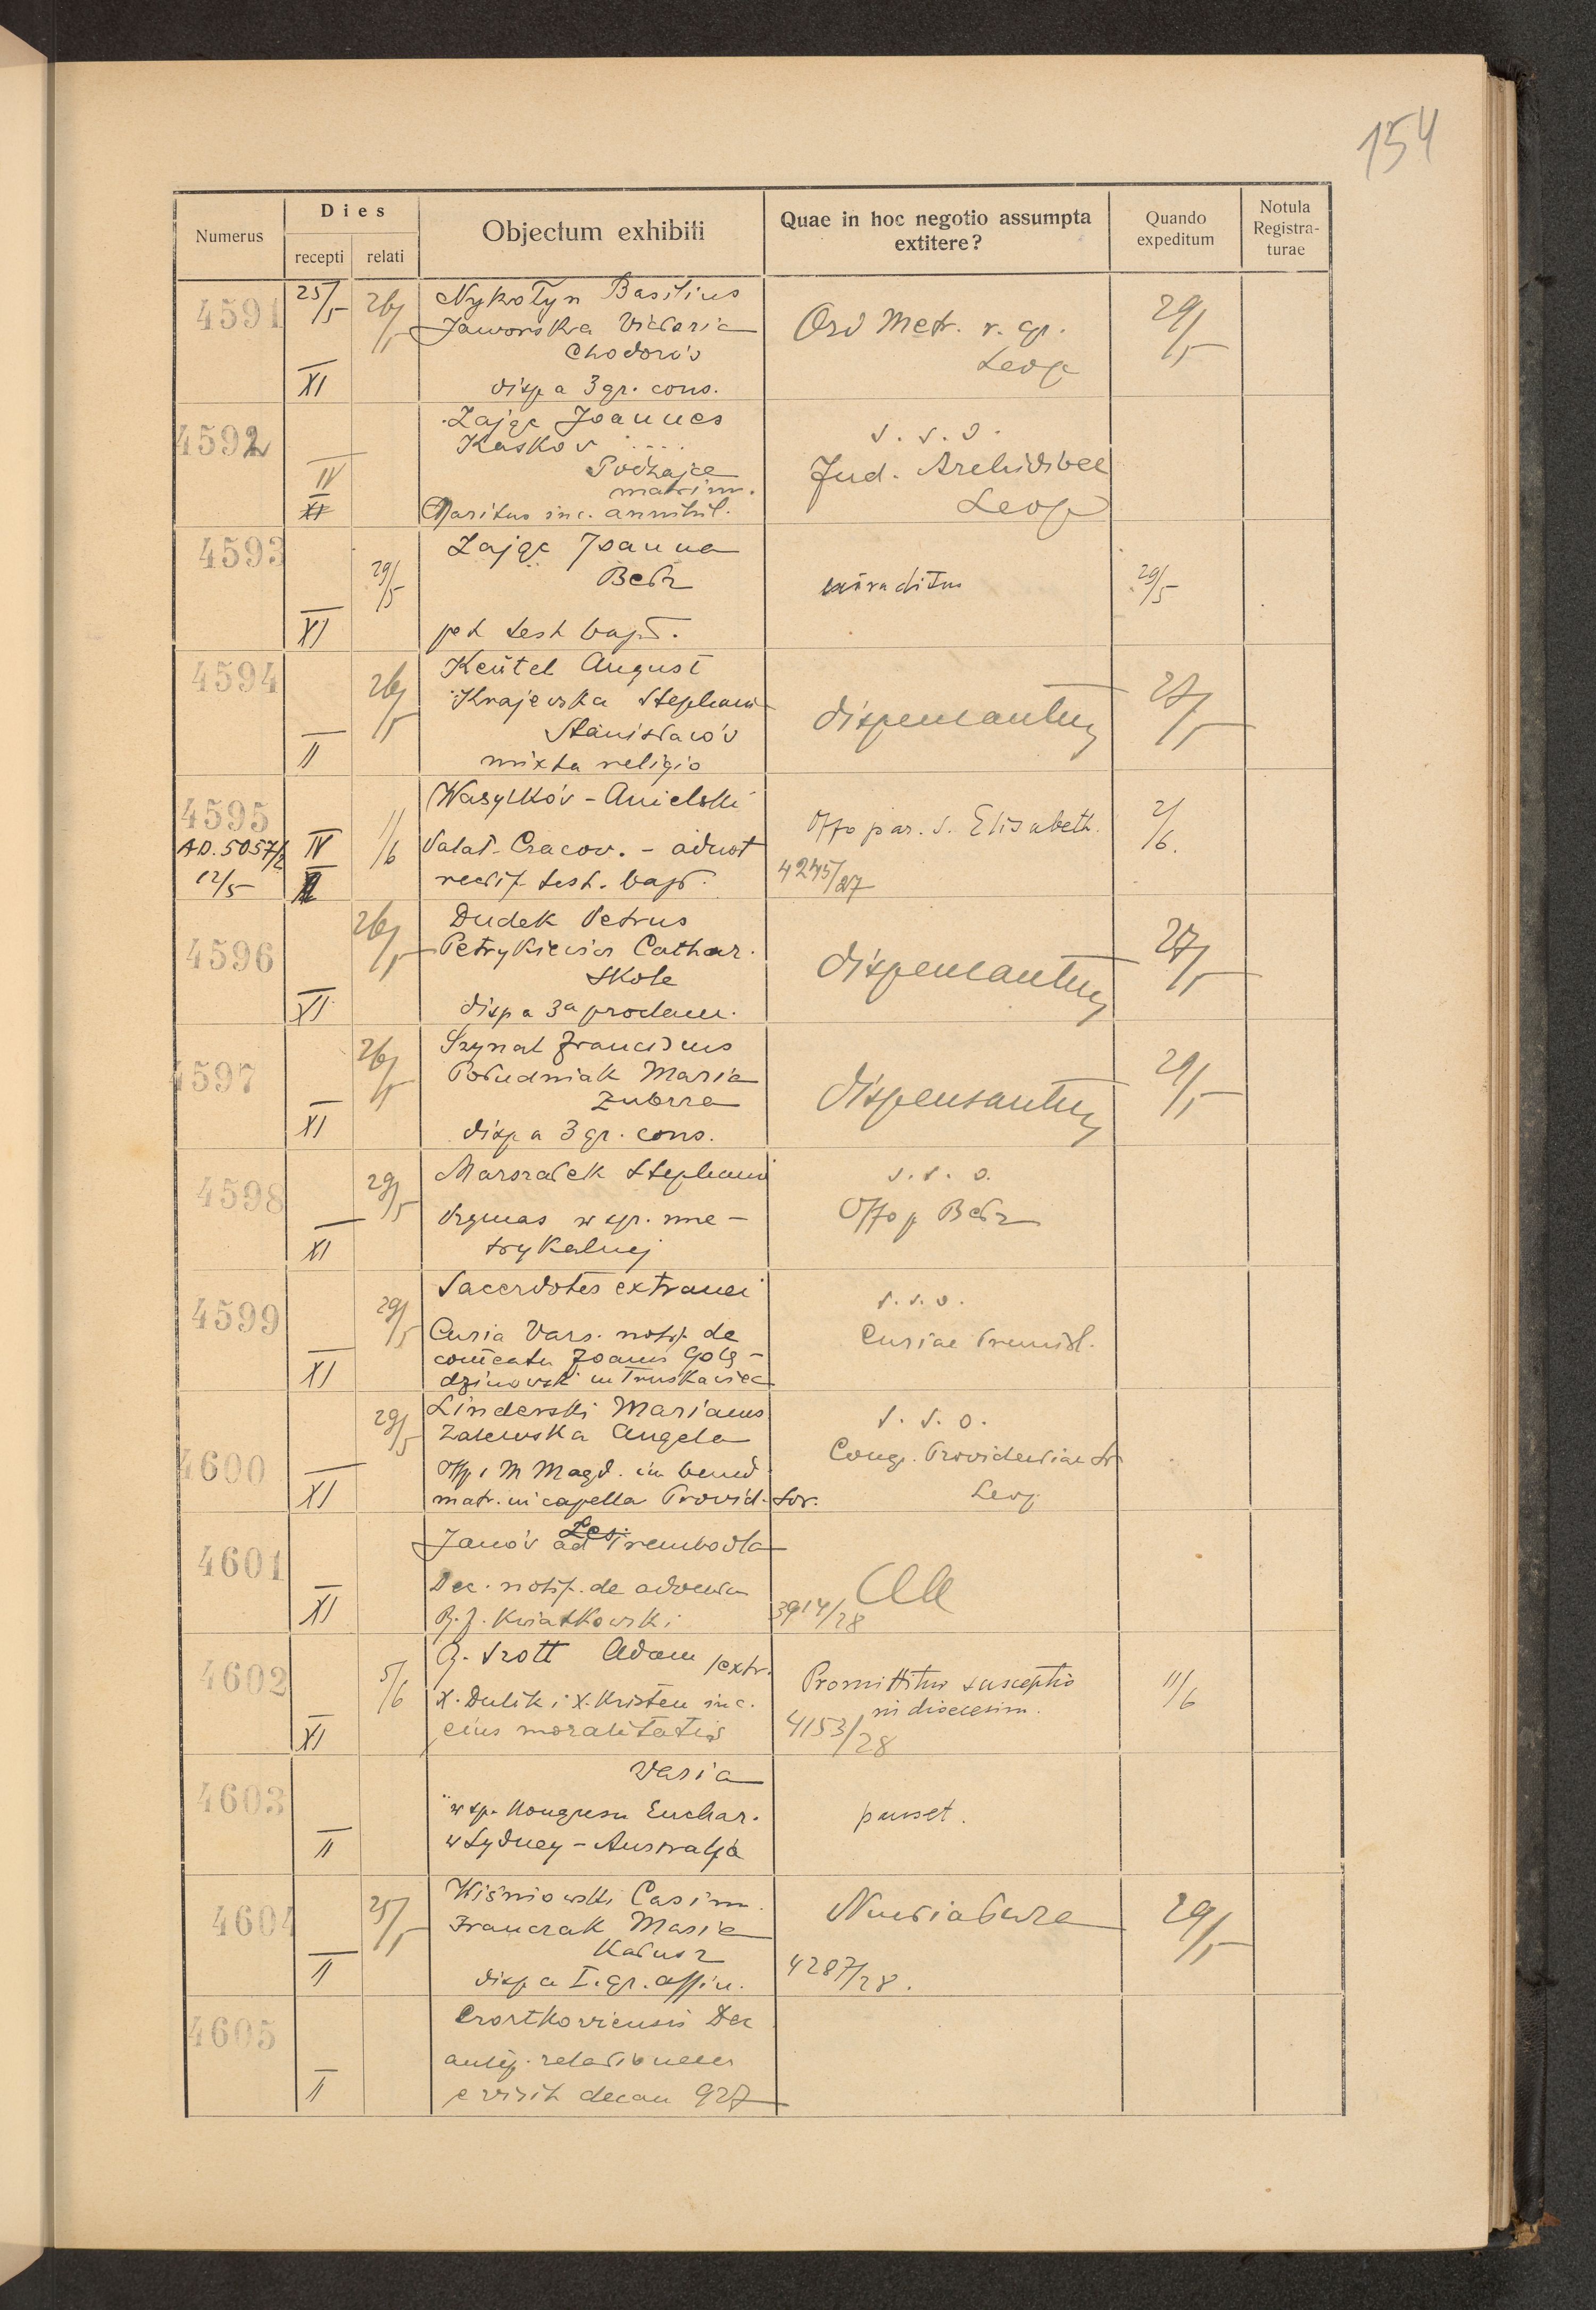 154
Numerus
Dies
recepti relati
Objectum exhibiti
Quae in hoc negotio assumpta extitere?
Quando expeditum
Notula Registra-turae
4591 25/5 26/5 Nykołyn Basilius
Jaworska Victoria
Chodorów
XI disp a 3 gr. cons.
Ord Metr. r. gr.
Leop
29/5
4592 Zając Joannes
Kaskov
Podhajce
IV matrim.
XI Maritus inc. annihil.
s. s. o.
Jud. Archidioec
Leop
4593 29/5 Zając Joanna
Bełz
XI pet test bapt.
extraditus 29/5
4594 26/5 Keütel August
Krajewska Stephani
Stanisławów
II mixta religio
dispensantur 27/5
4595 Wasylków - Anielski
AD. 5057/2 IV 1/6 Palat. Cracov. - adnot
12/5 II rectif. test. bapt.
Offo par. S. Elisabeth. 2/6.
4245/27
4596 26/5 Dudek Petrus
Petrykiewicz Cathar.
Skole
XI disp a 3a proclam.
dispensantur 27/5
4597 26/5 Szynal Franciscus
Południak Maria
Zubrza
XI disp a 3 gr. cons.
dispensantur 29/5
4598 29/5 Marszałek Stephani
Prymas w spr. me-
XI trykalnej
s. s. o.
Offo p Bełz
4599 29/5 Sacerdotes extranei
Curia Vars. notif. de
comeatu Joanis Golę-
XI dzinowski in Truskawiec
s. s. o.
Curiae Premisl.
4600 29/5 Linderski Marianus
Zalewska Angela
Offp. s M Magd. in bened
XI matr. in capella Provid. Sor.
s. s. o.
Cong. Providentiae
Leop
4601 Janów ad Trembowla
Dec. notif. de adventu
XI R. J. Kwiatkowski
3914/28
4602 5/6 Szott Adam /extr.
X. Dulik i X. Kristen inc.
XI eius moralitatis
Promittitur susceptio
in dioecesim.
4153/28
11/6
4603 Varia
w sp. Kongresu Euchar.
II w Sydney - Australja
4604 25/5 Wiśniowski Casim.
Franczak Maria
Kałusz
II disp a I. gr. affin.
Nuntiaturae 29/5
4287/28.
4605 Czortkoviensis Dec
relationem
II e visit decan 927